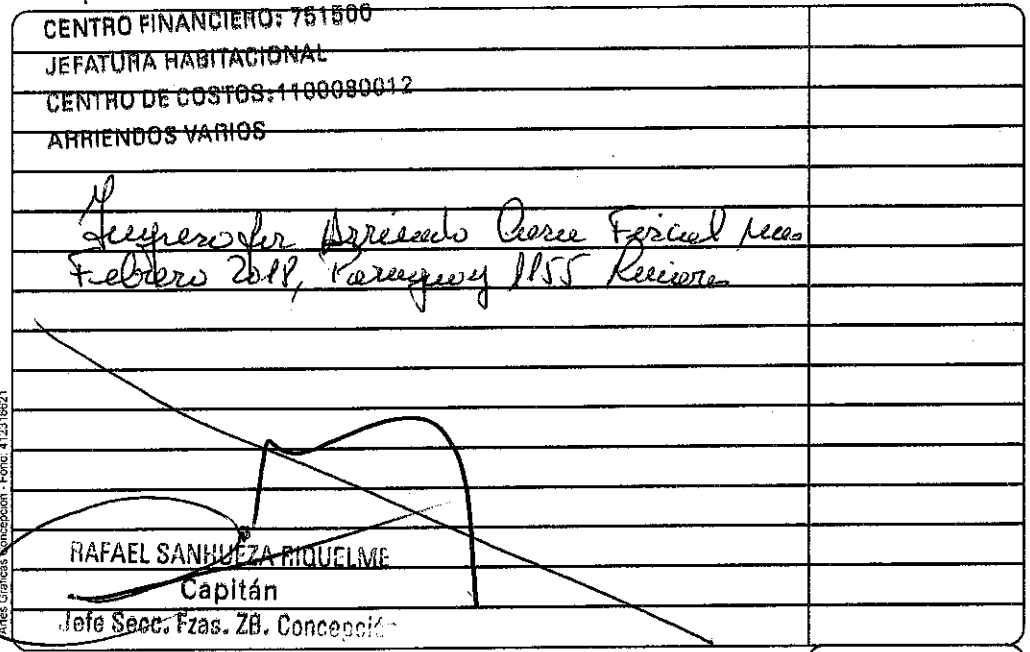 CENTRO FINANCIERO: 751500
JEFATURA HABITACIONAL
CENTRO DE COSTOS:1100080012
ARRIENDOS VARIOS
Ingreso por Arriendo Casa Fiscal mes
Febrero 2018, Paraguay 1155
RAFAEL SANHUEZA RIQUELME
Capitán
Jefe Secc. Fzas. ZB. Concepción
Artes Gráficas Concepción - Fono: 412318621